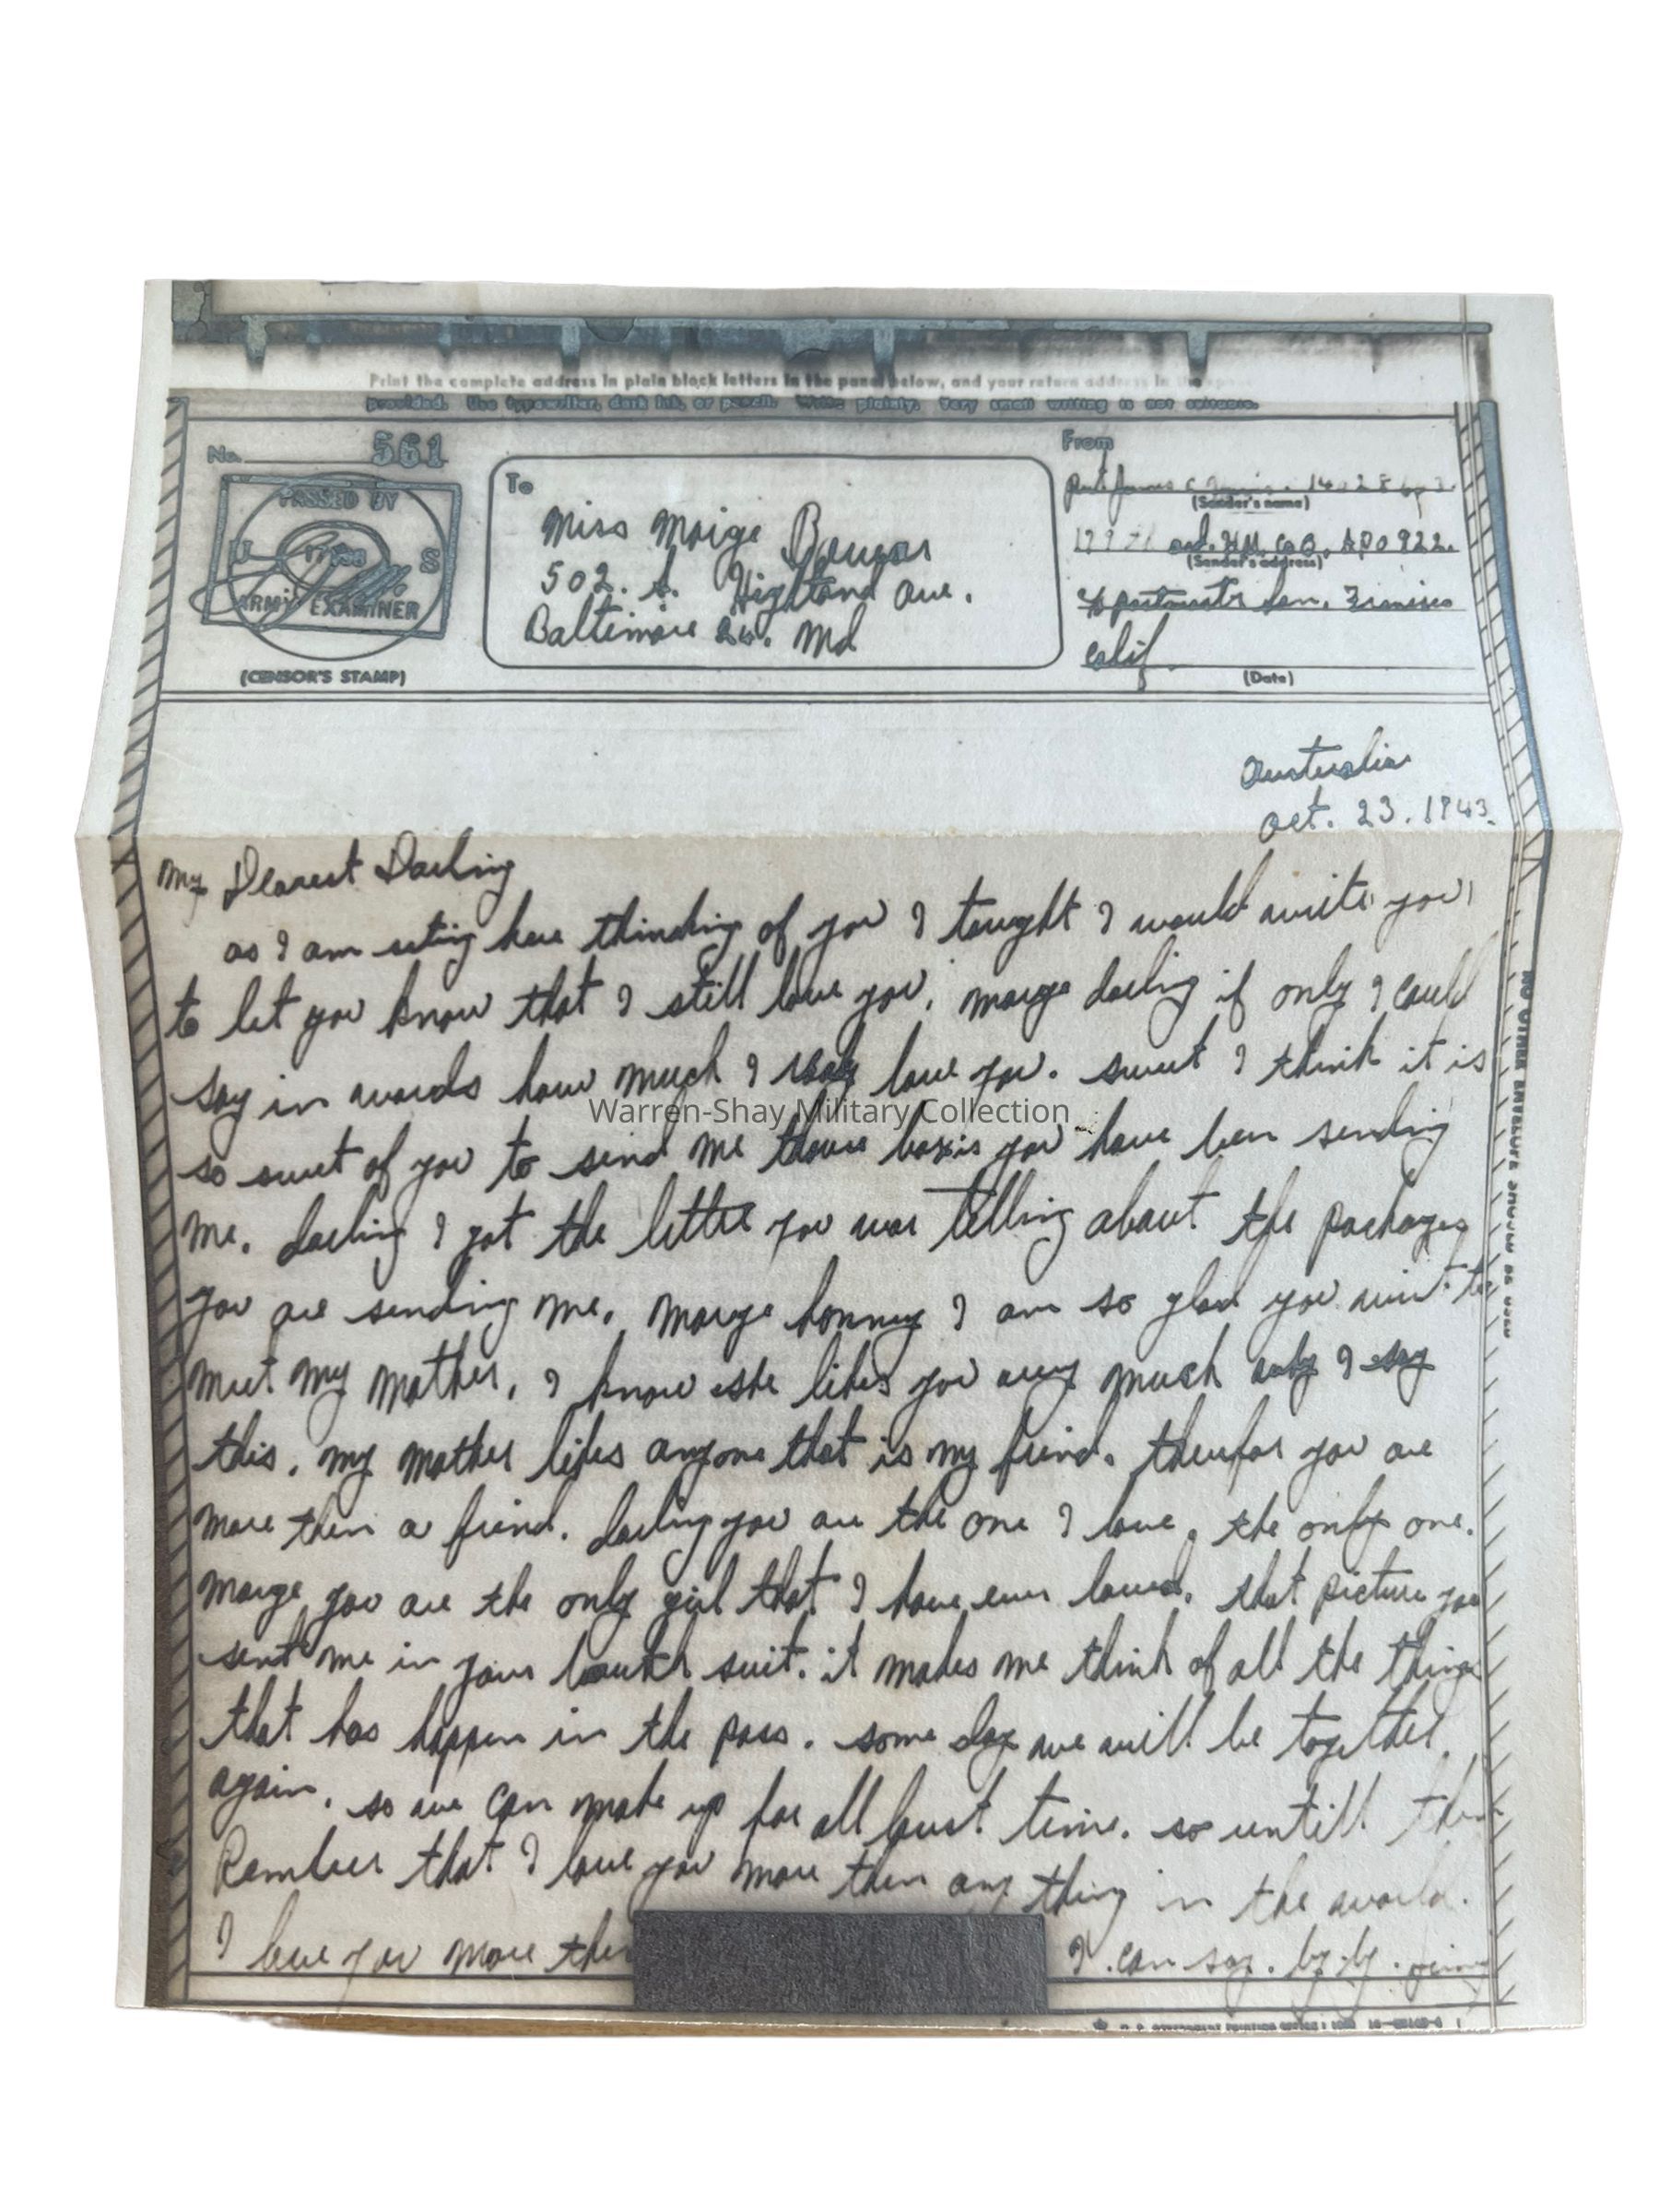 Print the complete address in plain block letters in the panel below, and your return address in the
provided. Use typewriter, dark ink, or pencil. Write plainly. Very small writing is not suitable.
No. 561
PASSED BY
U S
ARMY EXAMINER
(CENSOR'S STAMP)
To
Miss Marge
502. S. Highland ave.
Baltimore 24. Md
From
Pvt James C
(Sender's name)
ord. H.M. Co Q. APO 922.
(Sender's address)
c/o postmaster San. Francisco
Calif.
(Date)
Australia
Oct. 23. 1943.
My Dearest Darling
as I am seting here thinking of you I tought I would write you
to let you know that I still love you. Marge darling if only I could
say in words how much I realy love you. sweet I think it is
Warren-Shay Military Collection
so sweet of you to send me those boxis you have ben sending
me. darling I got the letter you was telling about the packages
you are sending me. Marge honney I am so glad you went to
meet my mother. I know she likes you very much only I say
this. my mother likes anyone that is my friend. therefor you are
more then a friend. darling you are the one I love. the only one.
Marge you are the only girl that I have ever loved. that picture you
sent me in your suit. it makes me think of all the things
that has happen in the pass. some day we will be together
again. so we can make up for all loust time. so untill then
Rember that I love you more then any thing in the world.
I love you more then I can say. by. by. Jimmy
NO OTHER ENVELOPE SHOULD BE USED
U. S. GOVERNMENT PRINTING OFFICE